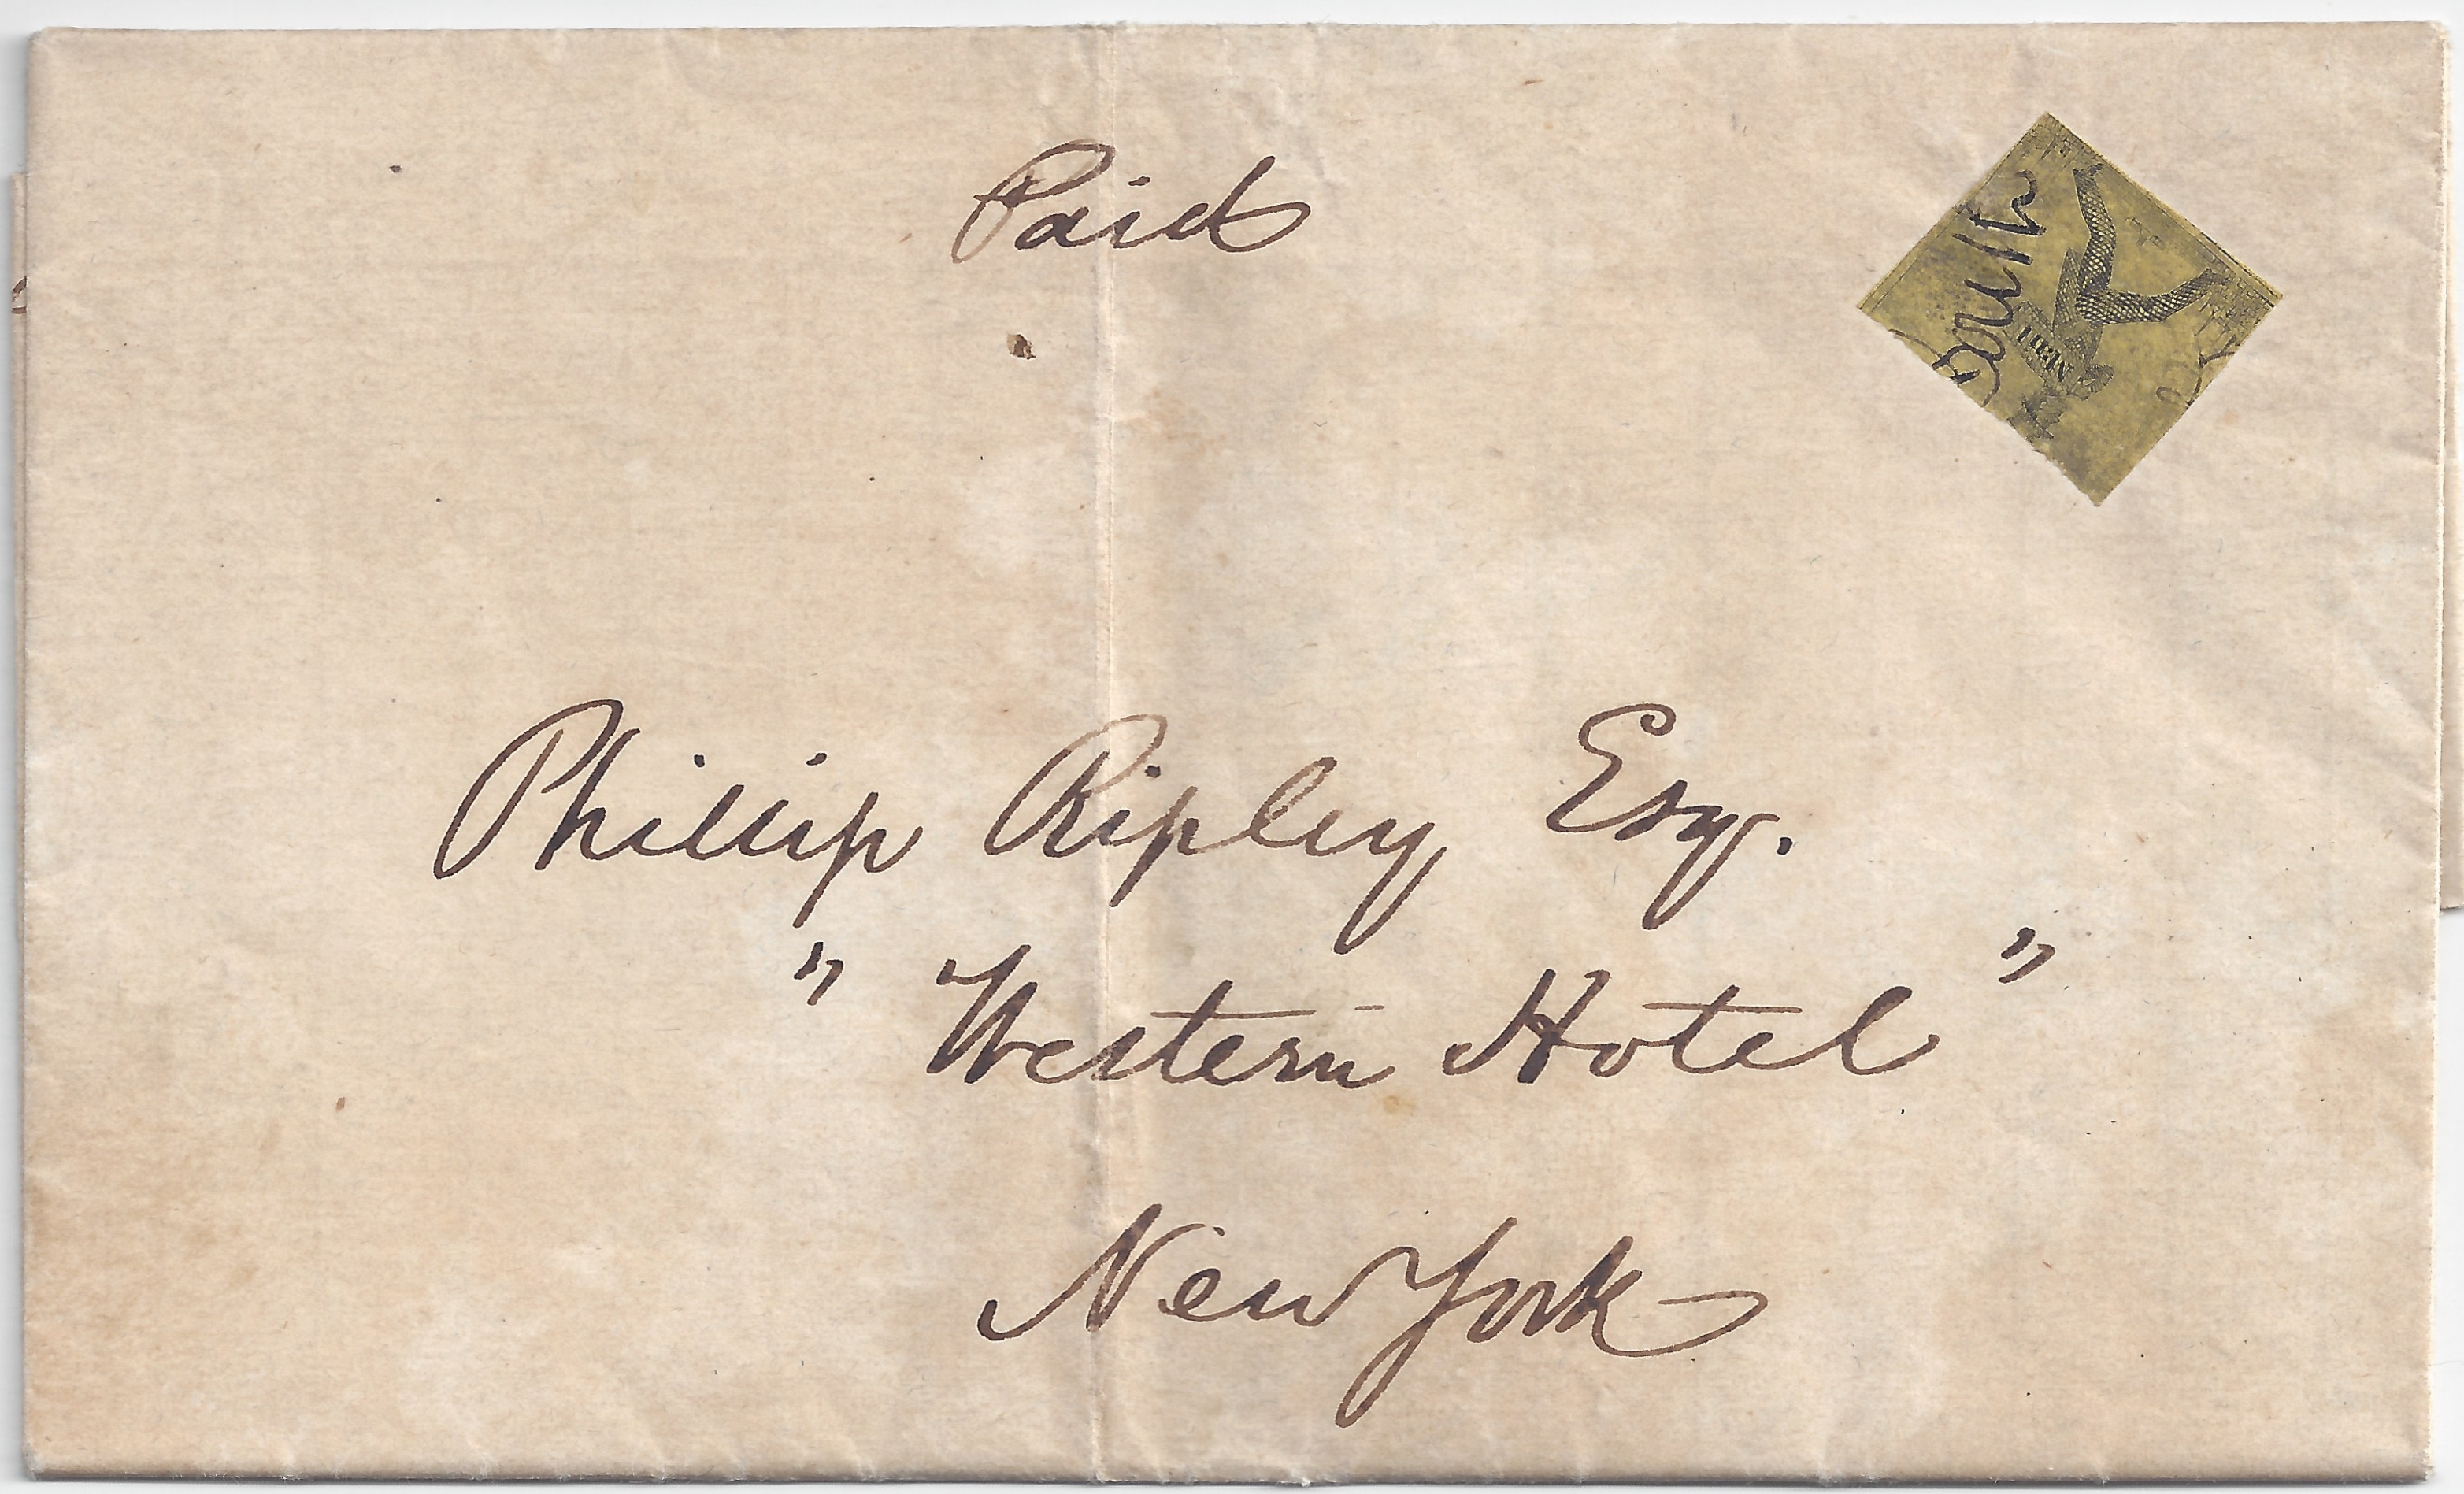 Paid
Phillip Ripley Esq.
" Western Hotel "
New York